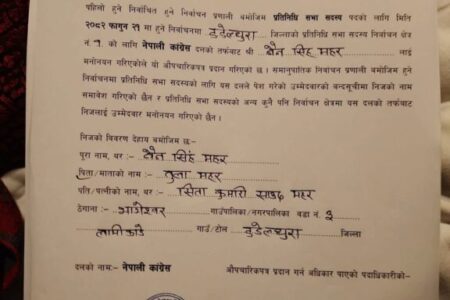 पहिलो हुने निर्वाचित हुने निर्वाचन प्रणाली बमोजिम प्रतिनिधि सभा सदस्य पदको लागि मिति
२०८२ फागुन २१ मा हुने निर्वाचनमा डडेल्धुरा जिल्लाको प्रतिनिधि सभा सदस्य निर्वाचन क्षेत्र
नं १. को लागि नेपाली कांग्रेस दलको तर्फबाट श्री क्षेत सिंह महर लाई
मनोनयन गरिएकोले यो औपचारिकपत्र प्रदान गरिएको छ । समानुपातिक निर्वाचन प्रणाली बमोजिम हुने
निर्वाचनमा प्रतिनिधि सभा सदस्यको लागि यस दलले पेश गरेको उम्मेदवारको बन्दसूचीमा निजको नाम
समावेश गरिएको छैन र प्रतिनिधि सभा सदस्यको अन्य कुनै पनि निर्वाचन क्षेत्रमा यस दलको तर्फबाट
निजलाई उम्मेदवार मनोनयन गरिएको छैन ।
निजको विवरण देहाय बमोजिम छः-
पूरा नाम, थर :- क्षेत सिंह महर
पिता/माताको नाम :- तुला महर
पति/पत्नीको नाम, थर :- सिता कुमारी साउद महर
ठेगाना :- भागेश्वर गाउँपालिका/नगरपालिका वडा नं ३
लामीकाँडे गाउँ/टोल डडेल्धुरा जिल्ला
दलको नामः- नेपाली कांग्रेस औपचारिकपत्र प्रदान गर्न अधिकार पाएको पदाधिकारीको-